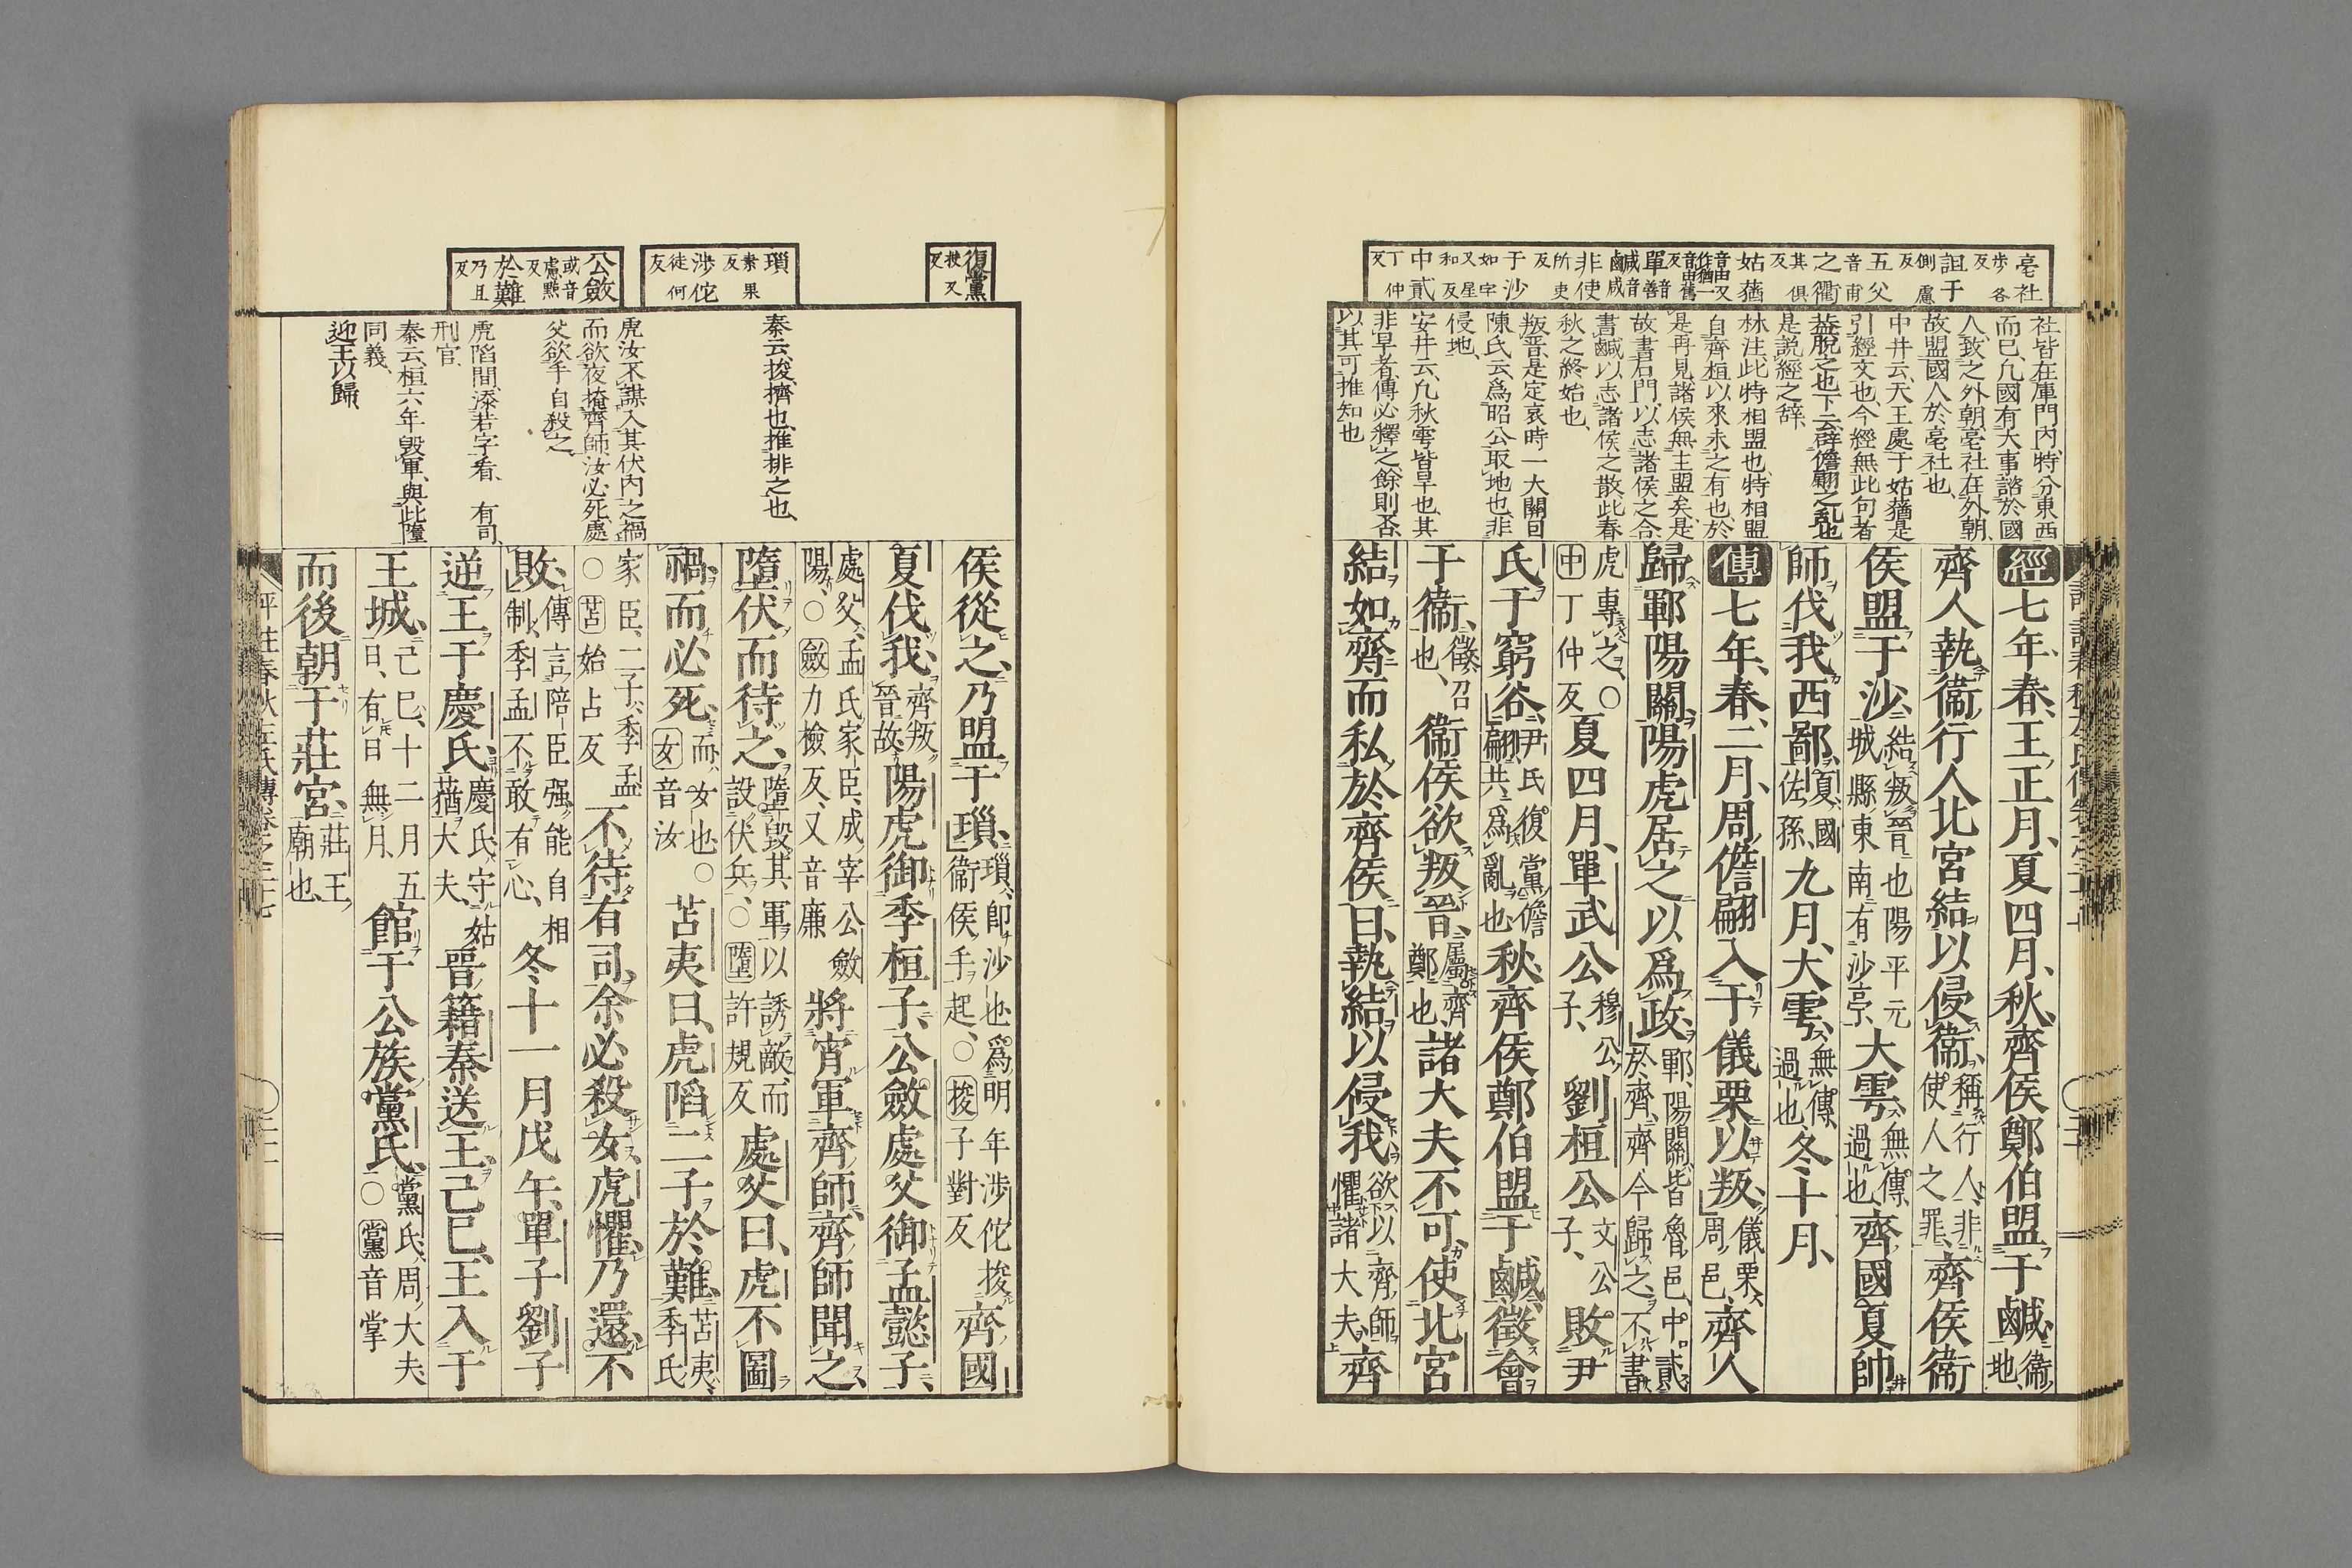 亳社
步各
反
詛于
側慮
反
五父
音甫
之衢
其俱
反
姑蕕
音由又
作猶一
音由舊
反
單音
善
鹹音
咸
非使
所吏
反
于沙
如字
又星
和反
中貳
丁仲
反
社皆在庫門內、特分東西
而已、凡國有大事諮於國
人、致之外朝、亳社在外朝、
故盟國人於亳社也、
中井云、天王處于姑蕕是
引經文也、今經無此句者
益脫之也、下云辟儋翩之亂也
是說經之辭、
林注此特相盟也、特相盟
自齊桓以來未之有也、於
是再見諸侯無主盟矣、是
故書石門、以志諸侯之合
書鹹以志諸侯之散、此春
秋之終始也、
叛晉是定哀時一大關目
陳氏云、爲昭公取地也、非
侵地、
安井云、凡秋雩皆旱也、其
非旱者、傳必釋之、餘則否
以其可推知也
經七年、春、王正月、夏四月、秋、齊侯鄭伯盟于鹹、衞地、
齊人執衞行人北宮結以侵衞、稱行人、非使人之罪、齊侯衞
侯盟于沙、結叛晉也陽平元城縣東南有沙亭、大雩、無傳、過也、齊國夏帥
師伐我西鄙、夏、國佐孫、九月、大雩、無傳、過也、冬十月、
傳七年、春、二月、周儋翩入于儀栗以叛、儀栗周邑、齊人
歸鄆陽關、陽虎居之以爲政、鄆、陽關、皆魯邑、中貳於齊、齊今歸之、不書
虎專之、〇中丁仲反夏四月、單武公穆公子、劉桓公文公子、敗尹
氏于窮谷、尹氏復黨儋翩、共爲亂也、秋、齊侯鄭伯盟于鹹、徵會
于衞、徵、召也、衞侯欲叛晉、屬齊鄭也、諸大夫不可、使北宮
結如齊、而私於齊侯曰、執結以侵我、欲以齊師懼諸大夫、齊
復黨
扶又
反
瑣
素果
反
涉佗
徒何
反
公斂
或音
慮點
反
於難
乃旦
反
秦云、捘、擠也、推排之也、
虎汝不謀入其伏內之禍
而欲夜掩齊師、汝必死、處
父欲手自殺之、
虎陷間、添若字看、有司、
刑官、
秦云、桓六年毀軍、與此墮
同義、
逆王以歸、
侯從之、乃盟于瑣、瑣、卽沙也、爲明年涉佗捘衞侯手起、〇捘子對反齊國
夏伐我、齊叛晉故、陽虎御季桓子、公斂處父御孟懿子、
處父、孟氏家臣、成宰公斂陽、〇斂力檢反、又音廉將宵軍齊師、齊師聞之、
墮伏而待之、墮毀其軍以誘敵、而設伏兵、〇墮許規反處父曰、虎不圖
禍、而必死、而、女也〇女音汝苫夷曰、虎陷二子於難、苫夷、季氏
家臣、二子、季孟〇苫始占反不待有司、余必殺女、虎懼、乃還、不
敗、傳言陪臣强、能自相制、季孟不敢有心、冬十一月戊午、單子劉子
逆王于慶氏、慶氏、守姑蕕大夫、晉籍秦送王、己巳、王入于
王城、己巳、十二月五日、有日無月、館于公族黨氏、黨氏、周大夫、〇黨音掌
而後朝于莊宮、莊王廟也、